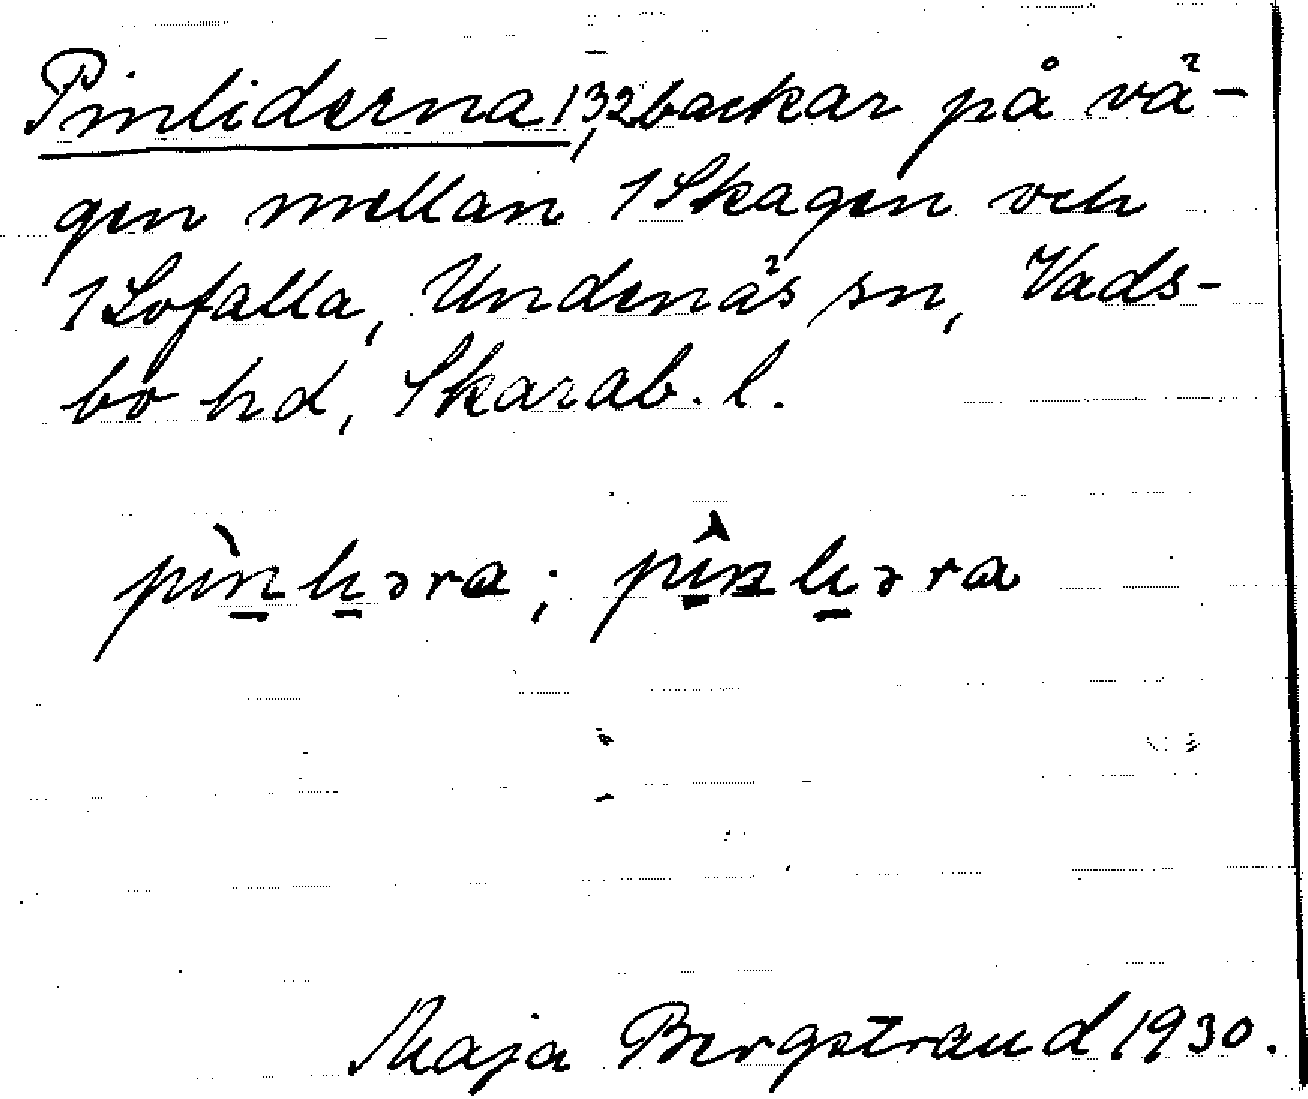 Pinliderna 13, 2 backar på vä-
gen mellan 1 Skagen och
1 Lofalla, Undenäs sn, Vads-
bo hd, Skarab. l.
Maja Bergstrand 1930.